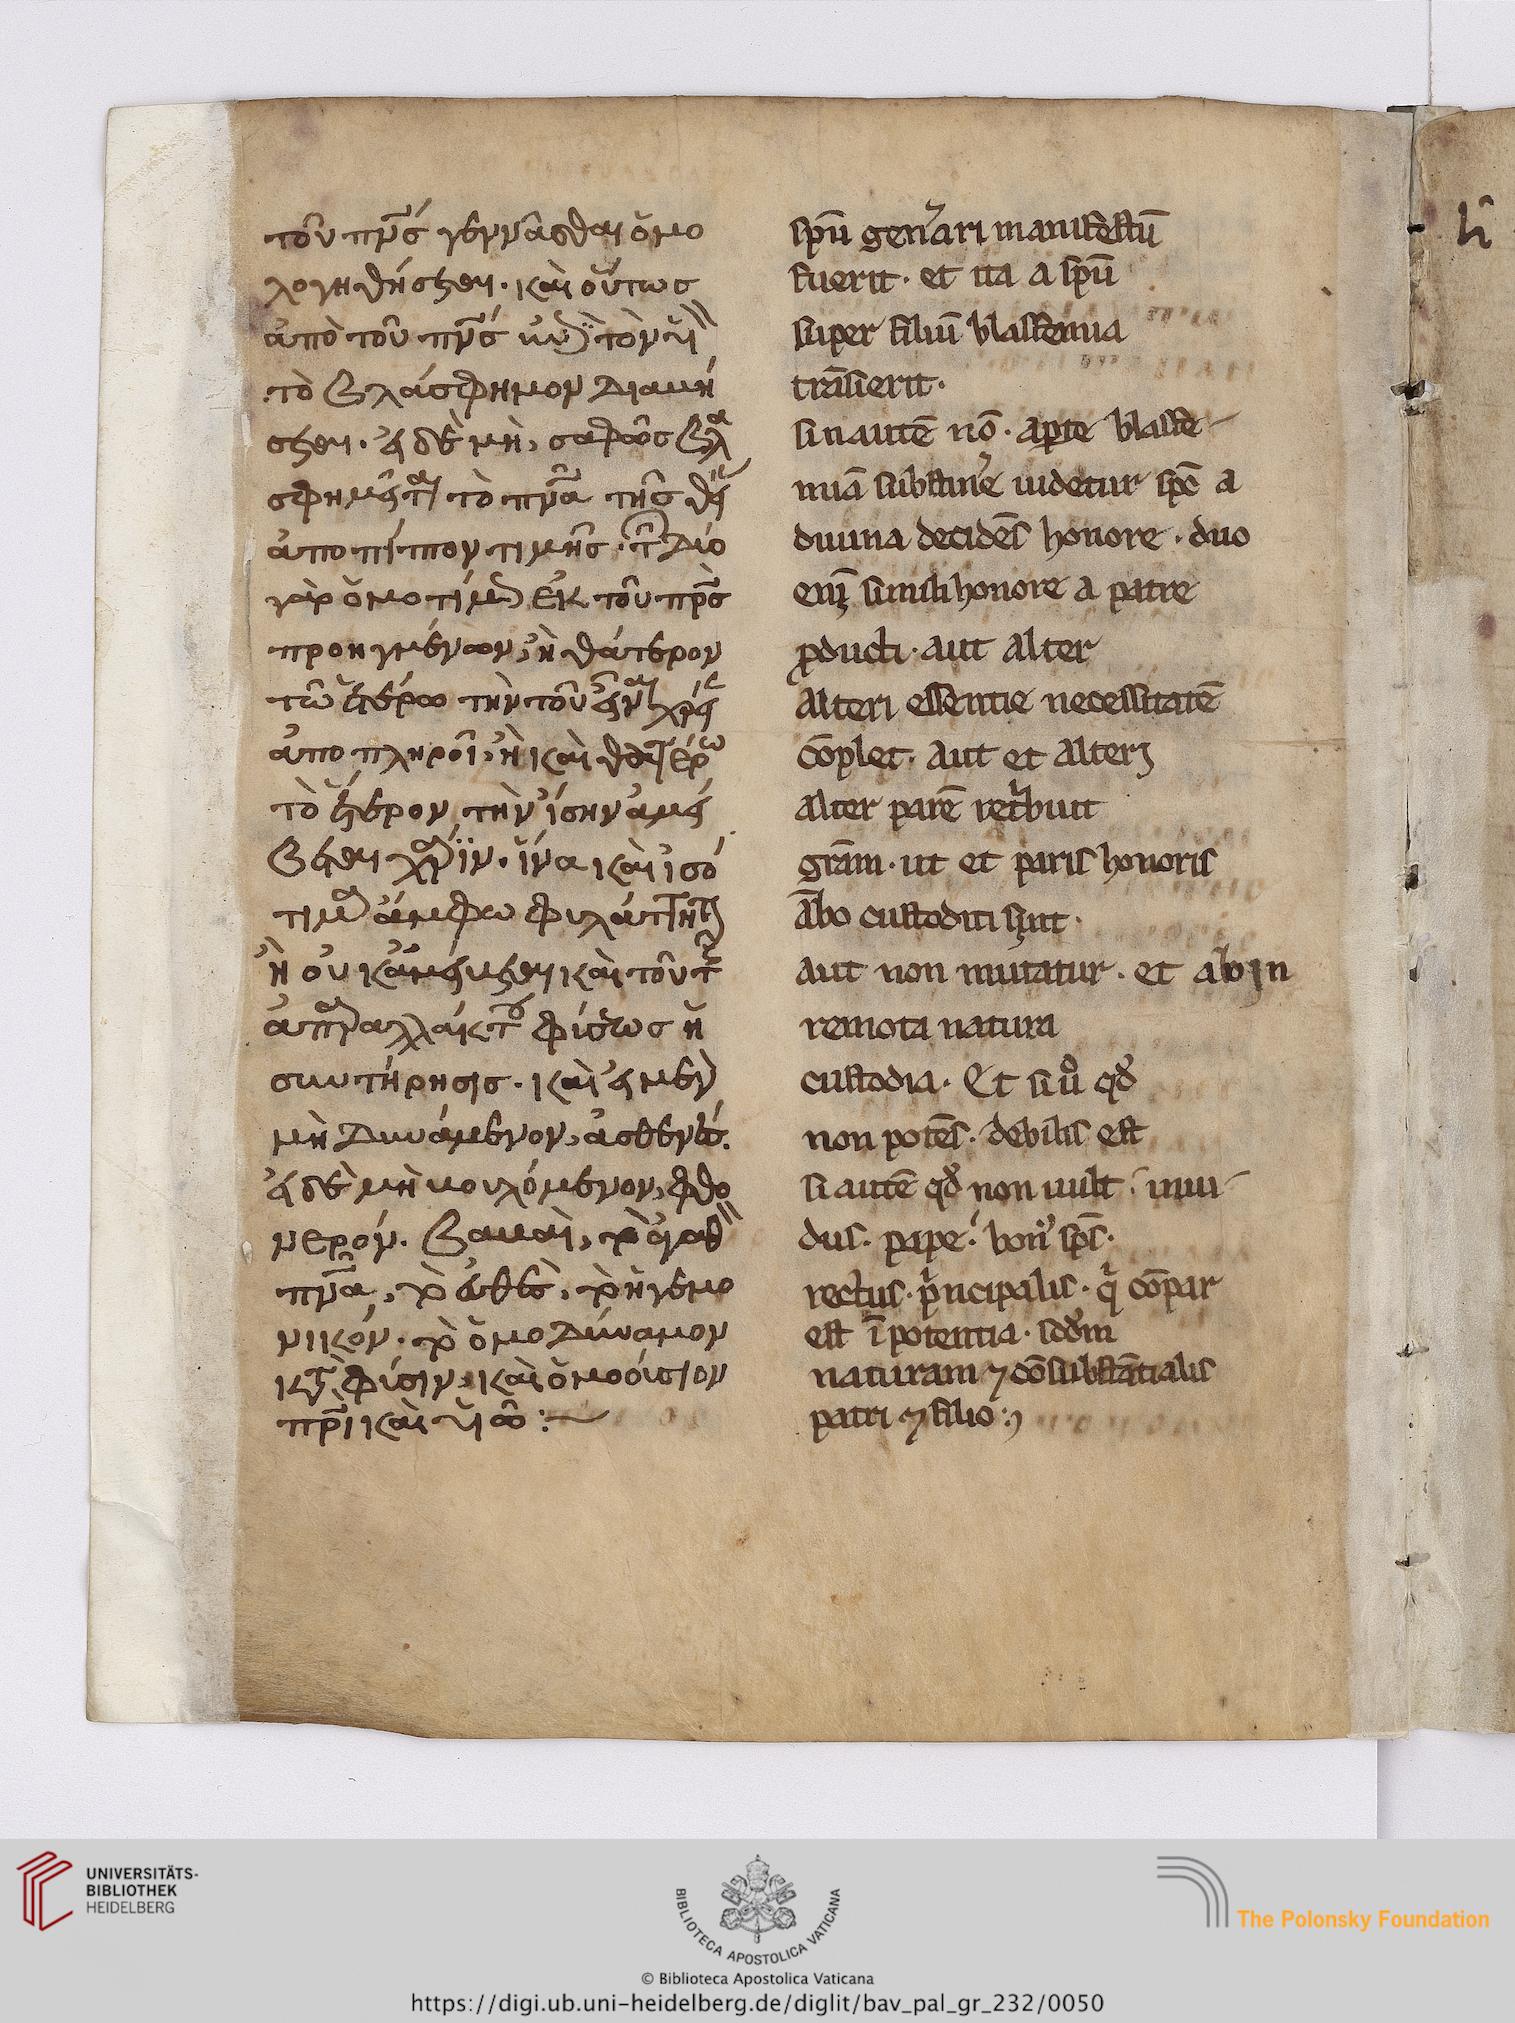 τοῦ πν̅ς γεννᾶσθαι ὁμο
λογηθήσεται· καὶ οὕτως
ἀπὸ τοῦ πν̅ς τὸν υἱ
τὸ βλάσφημον διαβή
σεται· εἰ δὲ μὴ, σαφῶς βλα
τὸ πν̅α τῆς θεί
ἀποπίπτον τιμῆς· Δύο
γὰρ ὁμοτίμ ἐκ τοῦ πρ̅ς
προηγμένων, ἢ θάτερον
τῶ ἑτέρω τὴν τοῦ εἶναι χρεί
ἀποπληροῖ, ἢ καὶ θατέρω
τὸ ἕτερον τὴν ἴσην ἀμεί
βεται χάριν· ἵνα καὶ ἰσό
τιμα ἄμφω φυλάττηται
ἢ οὐκ ἀμείβεται καὶ τοῦτ
ἀπαραλλάκτου φύσεως ἡ
συντήρησις· καὶ εἰ μὲν
μὴ δυνάμενον, ἀσθενές.
εἰ δὲ μὴ βουλόμενον, φθο
νερόν. βαβαὶ, τὸ ἀγαθ
πν̅α, τὸ εὐθὲς, τὸ ἡγεμο
νικόν· τὸ ὁμοδύναμον
κτ̀ φύσιν, καὶ ὁμοούσιον
πρ̅ι καὶ υἱῶ :~
spū gen̉ari manifestū
fuerit· et ita a spū
super filiū blasfemia
trāsierit·
sin autē nō· aꝑte blasfe-
miā substinẻ uidetur spc̄ a
diuina decidēs honore· duo
enīȝ simili honore a patre
ꝓducti· aut alter
alteri essentie necessitatē
cōplet· aut et alterȝ
alter parē retͥbuit
grām· ut et paris honoris
ābo custoditi sint·
aut non mutatur· et ab in
remota natura
custodia· Et si uͦ qđ
non potēs· debilis est
si autē qđ non uult· inui-
dus· pape· bonꝰ spc̄·
rectus· pͥncipalis· qͥ cōpar
est ī potentia· scđm
naturam ⁊ cōsubstātialis
patri ⁊ filio :
UNIVERSITÄTS-
BIBLIOTHEK
HEIDELBERG
BIBLIOTECA APOSTOLICA VATICANA
© Biblioteca Apostolica Vaticana
The Polonsky Foundation
https://digi.ub.uni-heidelberg.de/diglit/bav_pal_gr_232/0050